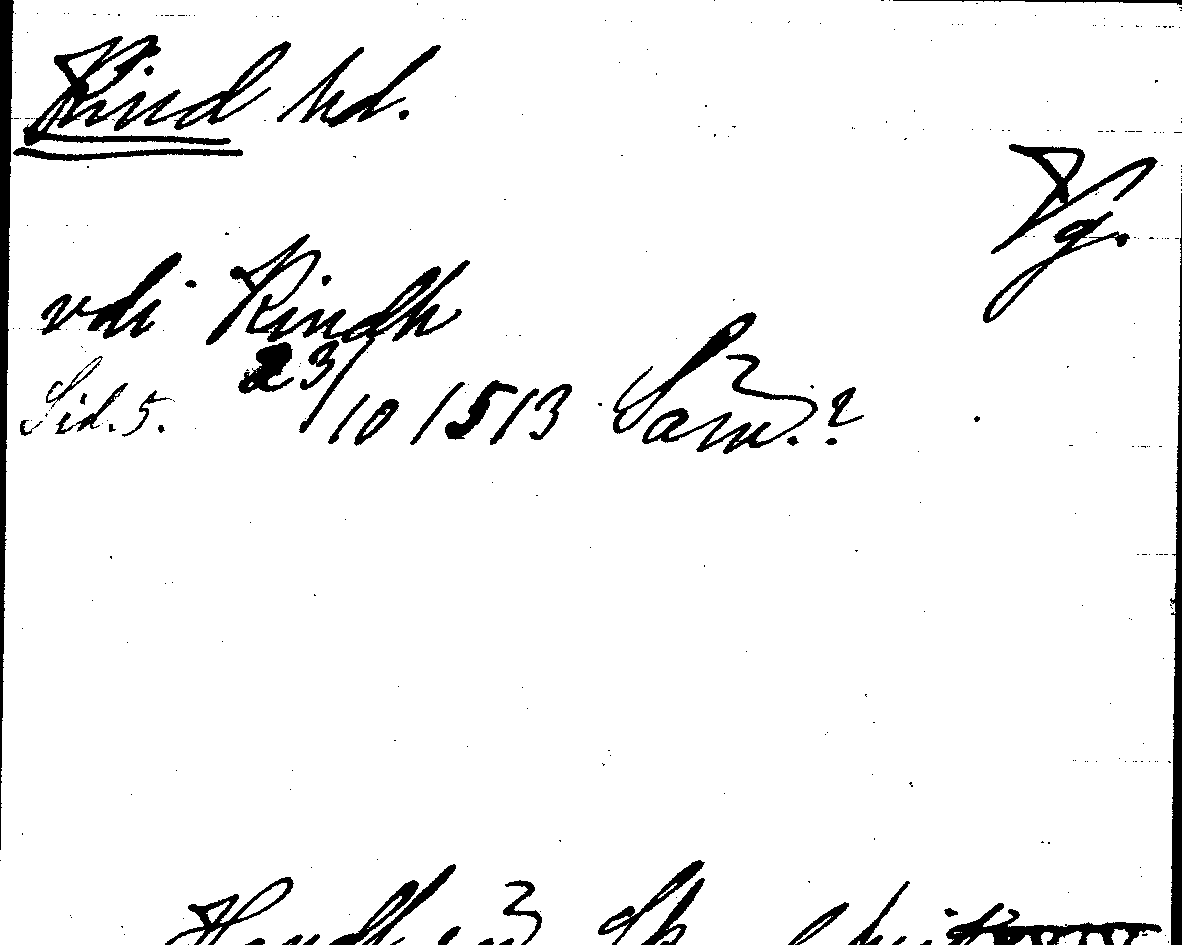 Kind hd.
Vg.
vdi Kindh
Sid. 5. 23/10 1513 Särt.?
Handl